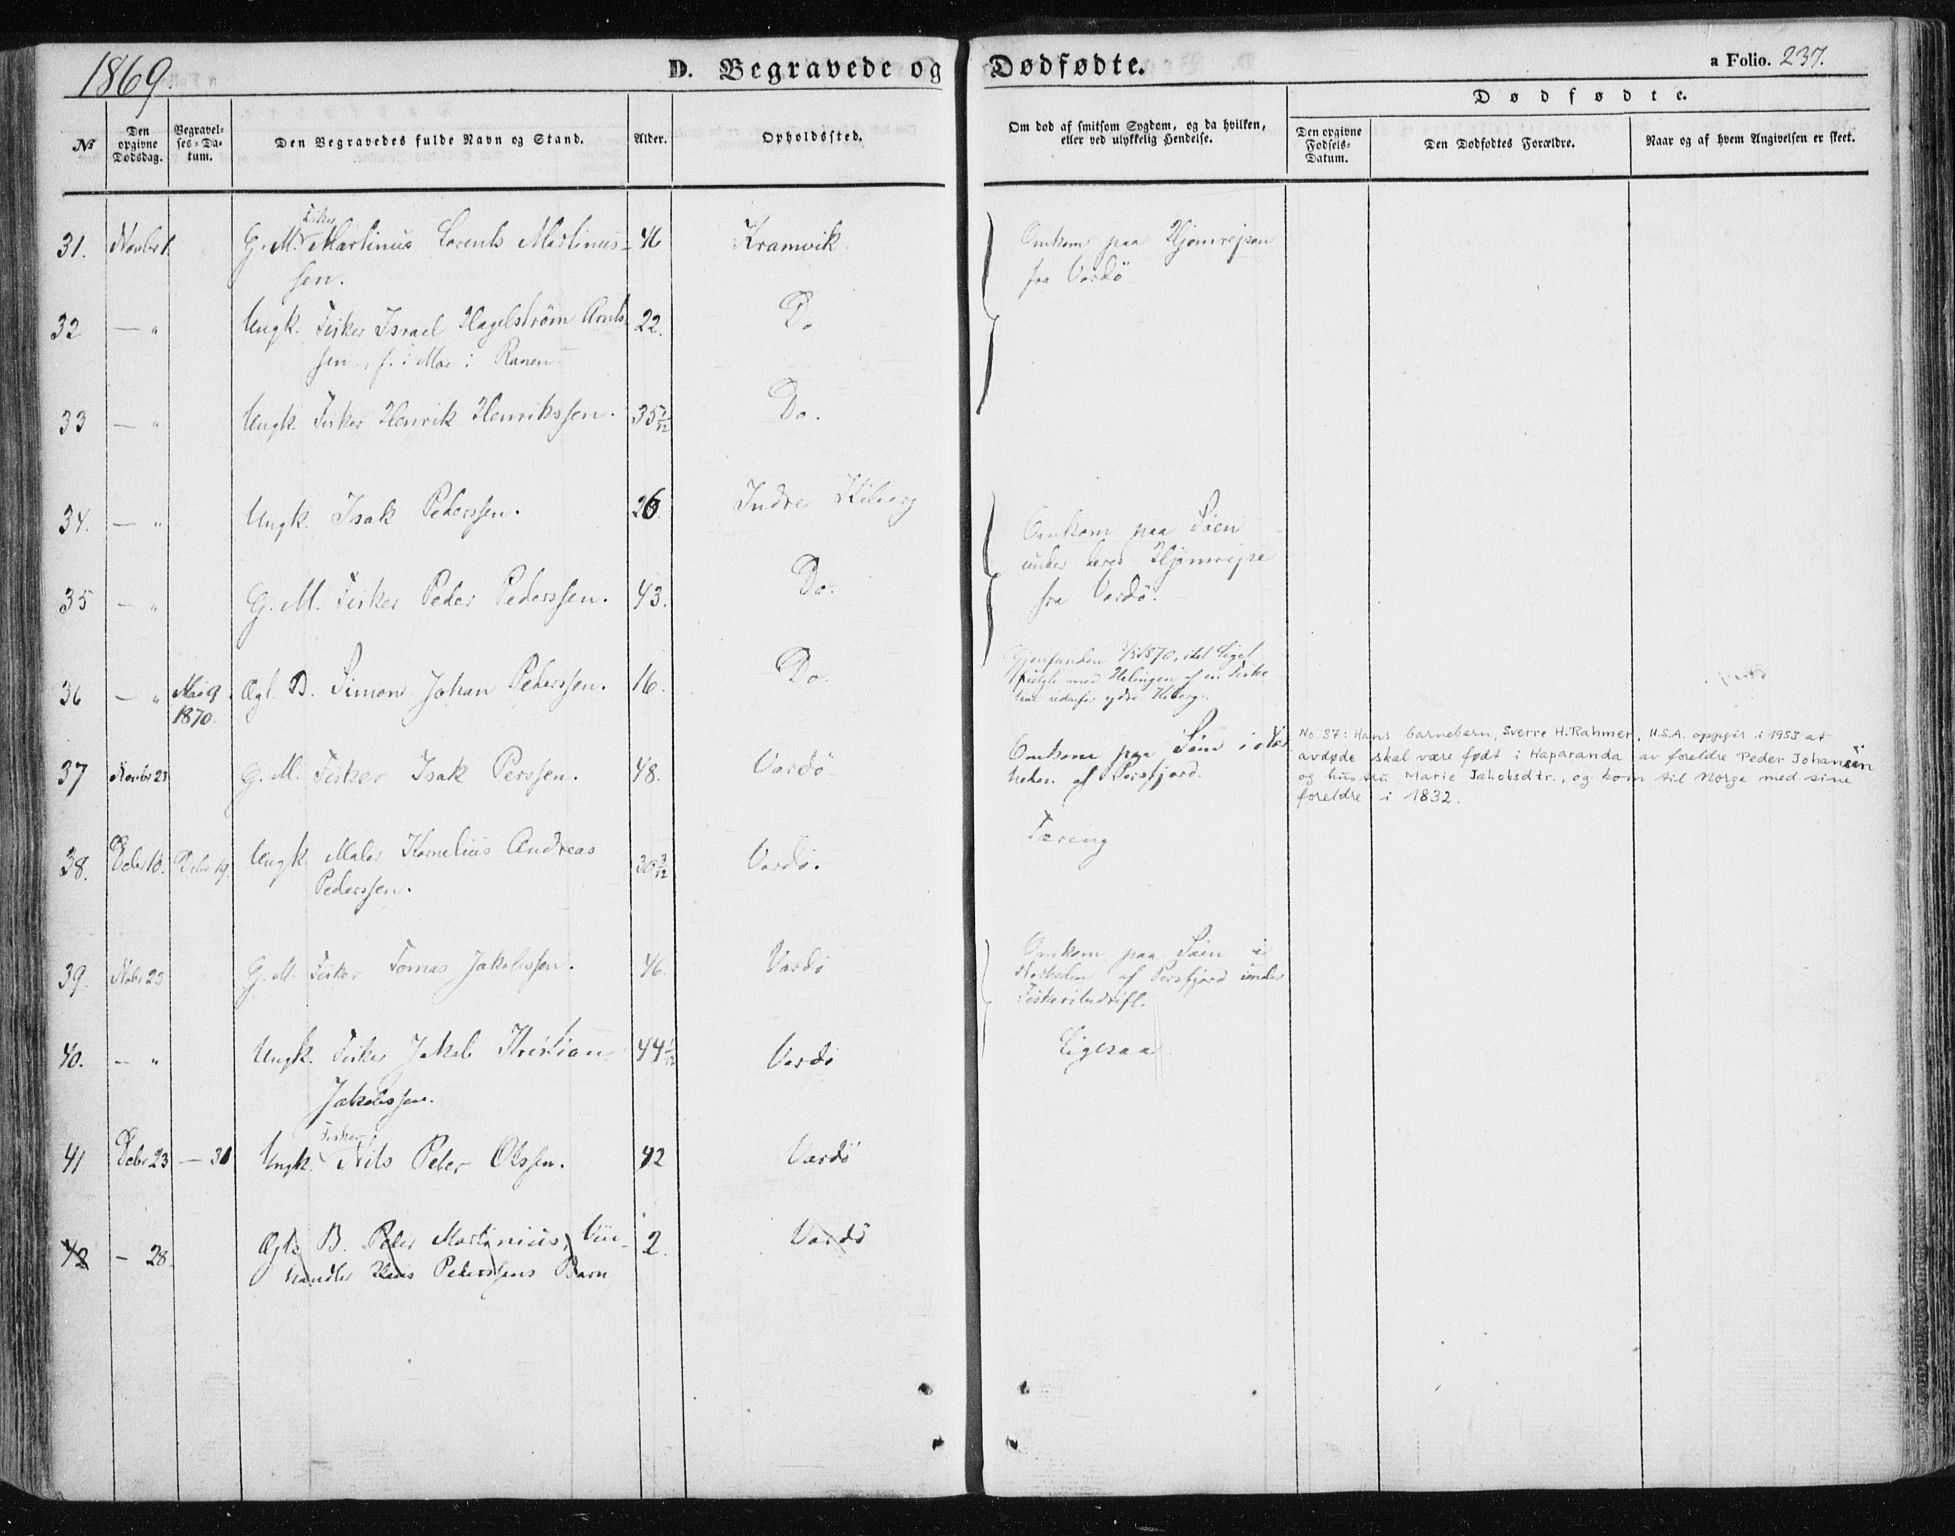 1869.
D. Begravede og Dødfødte.
a Folio. 237.
№
Den opgivne Dødsdag.
Begravelses-Datum.
Den Begravedes fulde Navn og Stand.
Alder.
Opholdssted.
Om død af smitsom Sygdom, og da hvilken, eller ved ulykkelig Hendelse.
Dødfødte.
Den opgivne Fødsels-Datum.
Den Dødfødtes Forældre.
Naar og af hvem Angivelsen er skeet.
31. Novbr 1. G. M. Fisker Martinus Lorents Martinus- 46 Kramvik. Omkom paa Hjemreisen
sen. fra Vardö
32 — " Ungk. Fisker Israel Hagelström Arnts- 22. Do
sen, f. i Moe i Ranen
33 — " Ungk. Fisker Henrik Henrikssen. 35 Do.
34. — " Ungk. Isak Pederssen. 26. Indre Kiberg Omkom paa Söen
under deres Hjemreise
35 — " G. M. Fisker Peder Pederssen. 43. Do. fra Vardö.
36 — " Mai 9 1870. Ægt. B. Simon Johan Pederssen. 16. Do. Gjenfunden 1870, idet Liget
ydre Kiberg.
37 Novbr 23 G. M. Fisker Isak Perssen. 48. Vardö Omkom paa Söen i Nær-
heden af Persfjord.
No. 37: Hans barnebarn, Sverre H. Rahmer, U.S.A. oppgir i 1953 at
avdøde skal være født i Haparanda av foreldre Peder Johansen
og hustru Marie Jakobsdtr., og kom til Norge med sine
foreldre i 1832.
38. Debr 10. Debr 19. Ungk. Maler Kornelius Andreas 30 3/12 Vardö. Tæring
Pederssen.
39. Nobr 23 G. M. Fisker Tomas Jakobssen. 46. Vardö Omkom paa Söen i
Nærheden af Persfjord under
Fiskeribedrift.
40. — " Ungk. Fisker Jakob Kristian 44 Vardö Ligesaa.
Jakobssen.
41 Debr 23 — 31 Ungk. Fisker Nils Peter Olssen. 42 Vardö
42 — 28. Ægte B. Peder Martinius, Vin- 2. Vardö
handler Hans Pederssens Barn